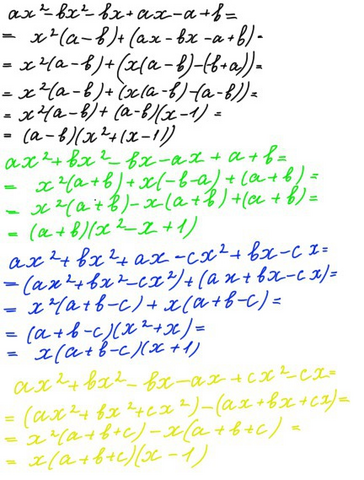 ax²-bx²-bx+ax-a+b=
= x²(a-b)+(ax-bx-a+b)=
= x²(a-b)+(x(a-b)-(b+a))=
= x²(a-b)+(x(a-b)-(a-b))=
= x²(a-b)+(a-b)(x-1)=
= (a-b)(x²+(x-1))
ax²+bx²-bx-ax+a+b=
= x²(a+b)+x(-b-a)+(a+b)=
= x²(a+b)-x(a+b)+(a+b)=
= (a+b)(x²-x+1)
ax²+bx²+ax-cx²+bx-cx=
=(ax²+bx²-cx²)+(ax+bx-cx)=
= x²(a+b-c)+x(a+b-c)=
= (a+b-c)(x²+x)=
= x(a+b-c)(x+1)
ax²+bx²-bx-ax+cx²-cx=
=(ax²+bx²+cx²)-(ax+bx+cx)=
= x²(a+b+c)-x(a+b+c) =
= x(a+b+c)(x-1)